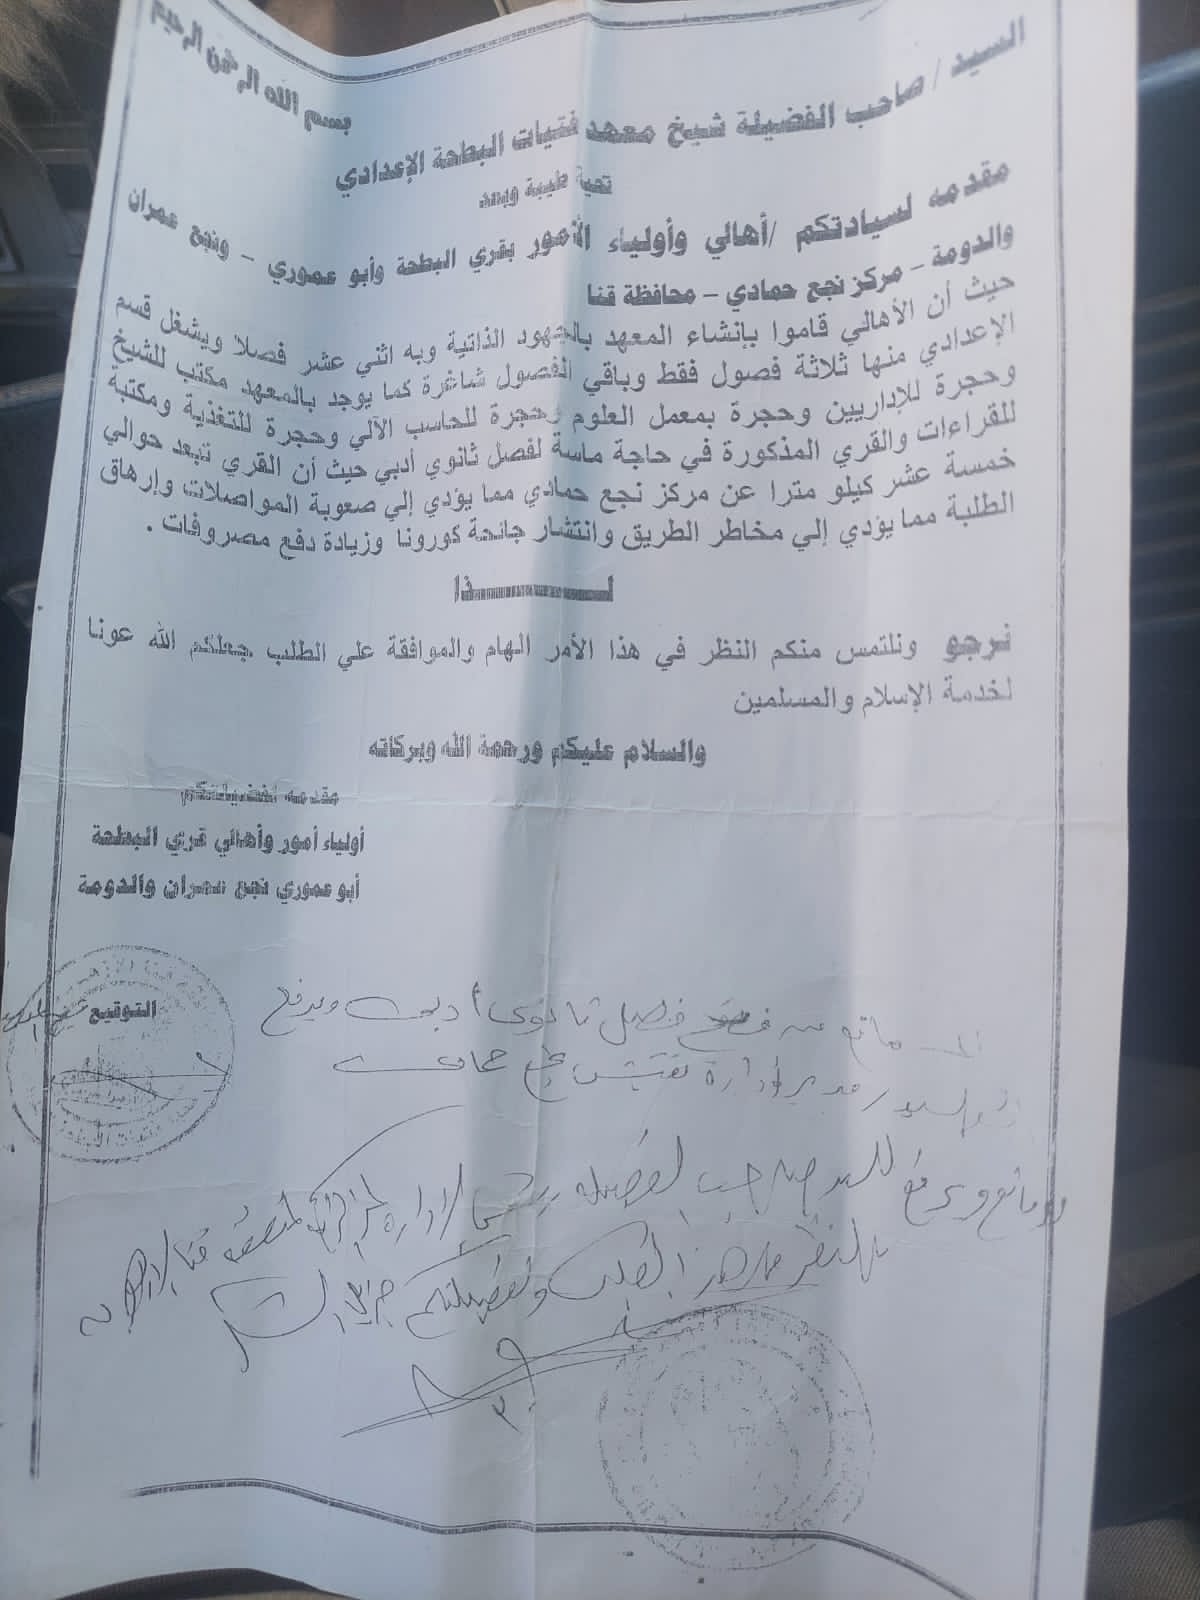 بسم الله الرحمن الرحيم
السيد / صاحب الفضيلة شيخ معهد فتيات البطحة الإعدادي
تحية طيبة وبعد
مقدمه لسيادتكم /أهالي وأولياء الأمور بقري البطحة وأبو عموري – ونجع عمران
والدومة – مركز نجع حمادي – محافظة قنا
حيث أن الأهالي قاموا بإنشاء المعهد بالجهود الذاتية وبه اثني عشر فصلا ويشغل قسم
الإعدادي منها ثلاثة فصول فقط وباقي الفصول شاغرة كما يوجد بالمعهد مكتب للشيخ
وحجرة للإداريين وحجرة بمعمل العلوم وحجرة للحاسب الآلي وحجرة للتغذية ومكتبة
للقراءات والقري المذكورة في حاجة ماسة لفصل ثانوي أدبي حيث أن القري تبعد حوالي
خمسة عشر كيلو مترا عن مركز نجع حمادي مما يؤدي إلي صعوبة المواصلات وإرهاق
الطلبة مما يؤدي إلي مخاطر الطريق وانتشار جائحة كورونا وزيادة دفع مصروفات .
لـــــــــــذا
نرجو ونلتمس منكم النظر في هذا الأمر الهام والموافقة علي الطلب جعلكم الله عونا
لخدمة الإسلام والمسلمين
والسلام عليكم ورحمة الله وبركاته
مقدمه لفضيلتكم
أولياء أمور وأهالي قري البطحة
أبو عموري نجع عمران والدومة
التوقيع
مانع من فصل ثانوى أدبى ويرفع
مدير إدارة تفتيش نجع حمادى
مانع ويرفع للسيد صاحب الفضيلة رئيس الإدارة المركزية لمنطقة قنا الأزهرية
للنظر هذا الطلب ولفضيلتكم جزيل الشكر